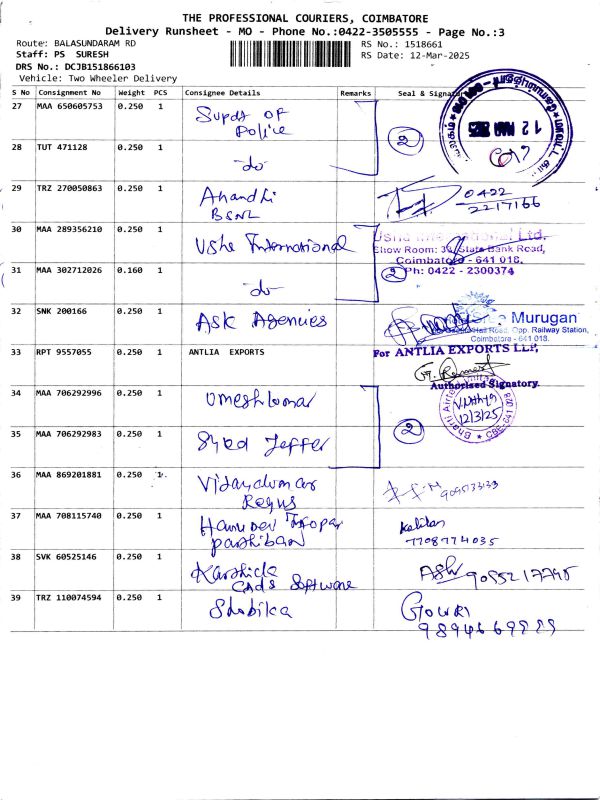 THE PROFESSIONAL COURIERS, COIMBATORE
Delivery Runsheet - MO - Phone No.:0422-3505555 - Page No.:3
Route: BALASUNDARAM RD RS No.: 1518661
Staff: PS SURESH RS Date: 12-Mar-2025
DRS No.: DCJB151866103
Vehicle: Two Wheeler Delivery
S No Consignment No Weight PCS Consignee Details Remarks Seal & Signature
27 MAA 650605753 0.250 1 Supdt OF
Police
2
12 MAR 2025
28 TUT 471128 0.250 1 -do-
29 TRZ 270050863 0.250 1 Anandhi 0422
BSNL 2217166
30 MAA 289356210 0.250 1 Usha International Usha International Ltd.
Show Room: State Bank Road,
Coimbatore - 641 018.
31 MAA 302712026 0.160 1 -do- 2 Ph: 0422 - 2300374
32 SNK 200166 0.250 1 ASK Agencies Murugan
Road, Opp. Railway Station,
Coimbatore - 641 018.
33 RPT 9557055 0.250 1 ANTLIA EXPORTS For ANTLIA EXPORTS LLP,
Authorised Signatory.
34 MAA 706292996 0.250 1 Umeshkumar
12/3/25
35 MAA 706292983 0.250 1 Syed Jeffer 2
36 MAA 869201881 0.250 1 Vijayakumar
37 MAA 708115740 0.250 1
parthiban 7708774035
38 SVK 60525146 0.250 1 Karthick
Cads Software
39 TRZ 110074594 0.250 1 Shobika Gowri